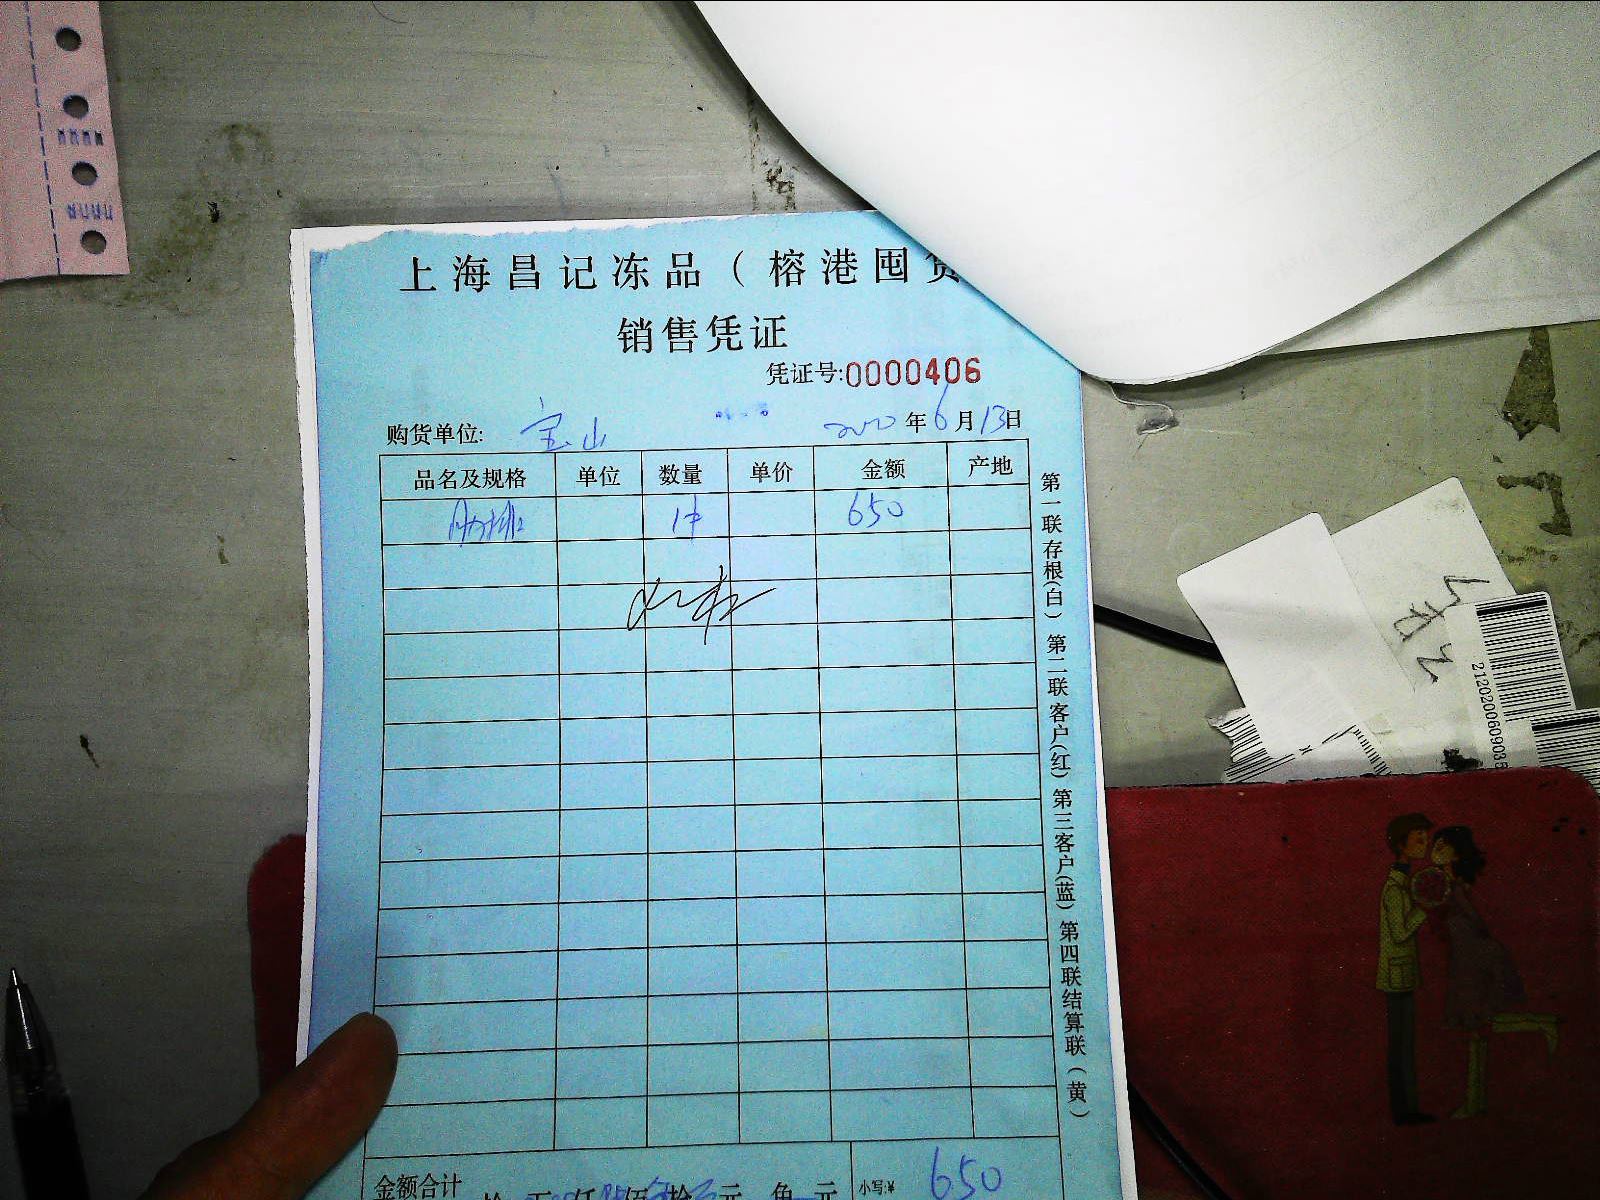 上海昌记冻品(榕港囤货
销售凭证
凭证号:0000406
购货单位: 宝山 2020年6月13日
品名及规格 单位 数量 单价 金额 产地
肋排 1件 650
第一联存根(白) 第二联客户(红) 第三客户(蓝) 第四联结算联(黄)
金额合计 拾 万 仟 佰 拾 元 角 元 小写:¥ 650
2120200609038